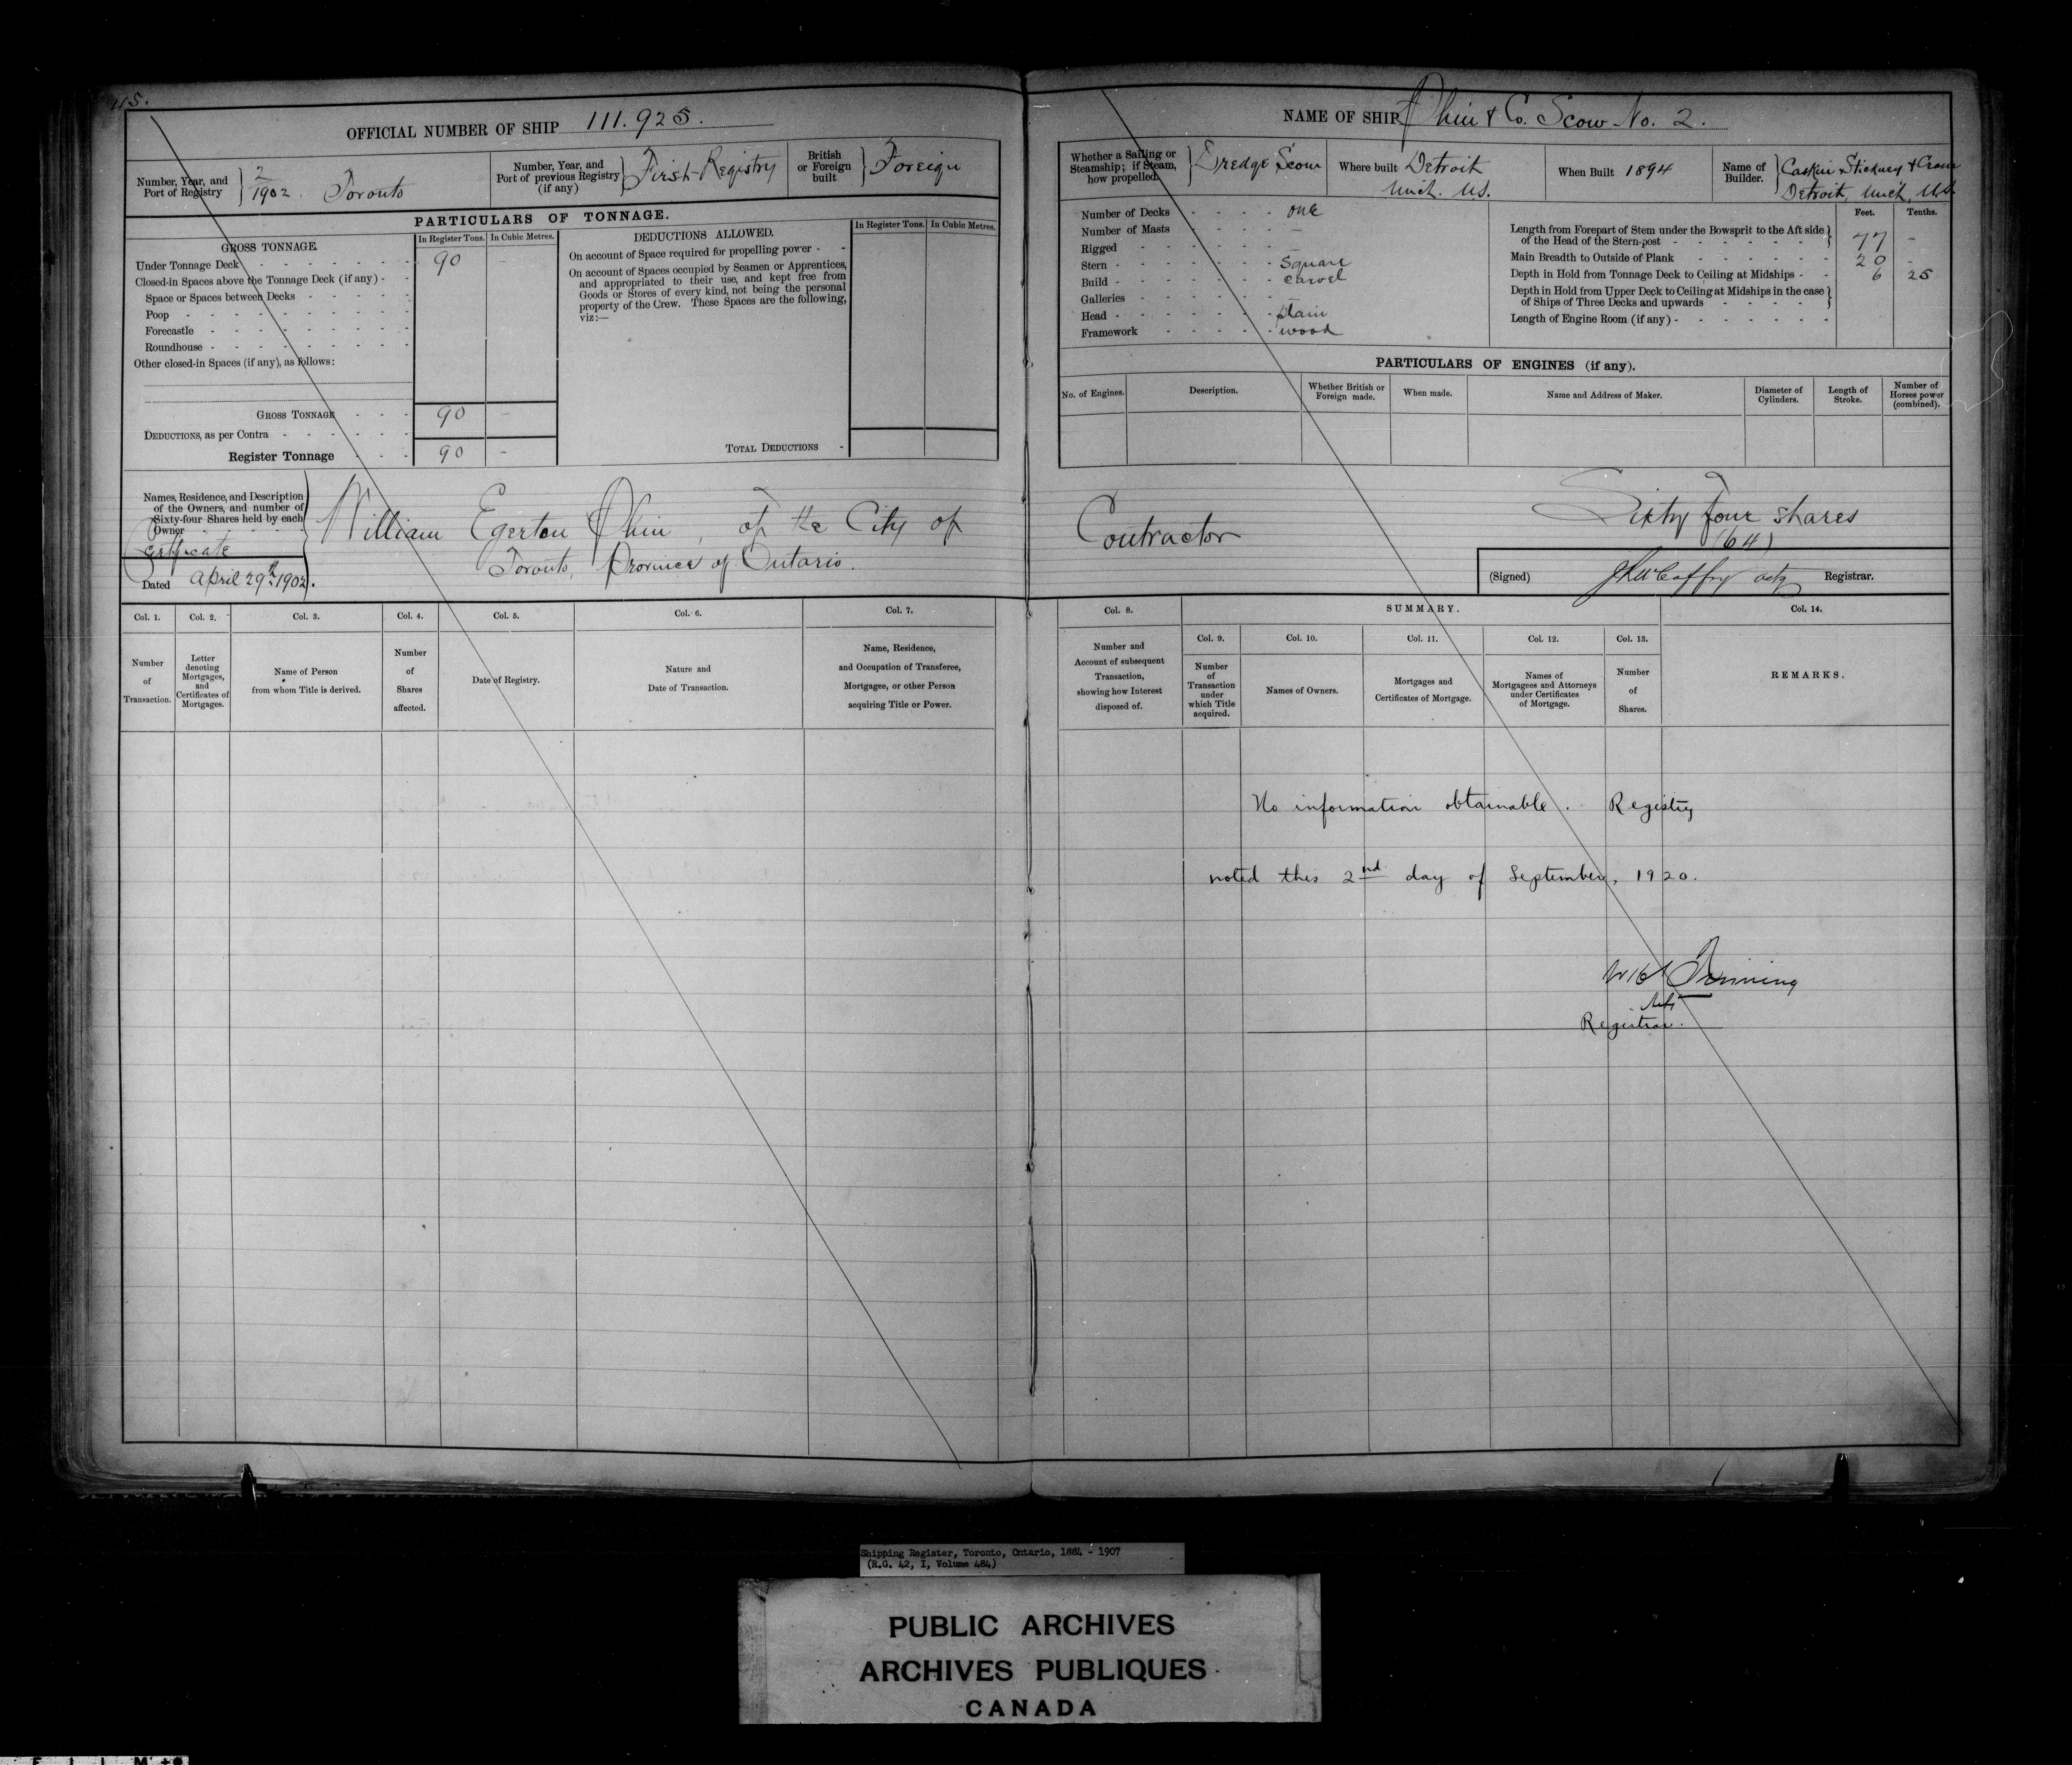 115.
OFFICIAL NUMBER OF SHIP 111.925.
Number, Year, and Port of Registry } 2/1902. Toronto
Number, Year, and Port of previous Registry (if any) } First Registry
British or Foreign built } Foreign
PARTICULARS OF TONNAGE.
GROSS TONNAGE.
In Register Tons. In Cubic Metres.
Under Tonnage Deck 90 -
Closed-in Spaces above the Tonnage Deck (if any)
Space or Spaces between Decks
Poop
Forecastle
Roundhouse
Other closed-in Spaces (if any), as follows:
GROSS TONNAGE 90 -
DEDUCTIONS, as per Contra
Register Tonnage 90 -
DEDUCTIONS ALLOWED.
In Register Tons. In Cubic Metres.
On account of Space required for propelling power
On account of Spaces occupied by Seamen or Apprentices,
and appropriated to their use, and kept free from
Goods or Stores of every kind, not being the personal
property of the Crew. These Spaces are the following,
viz:—
TOTAL DEDUCTIONS
Names, Residence, and Description
of the Owners, and number of
Sixty-four Shares held by each
Owner
Certificate
Dated April 29th 1902.
William Egerton Phin, of the City of
Toronto, Province of Ontario.
Col. 1. Col. 2. Col. 3. Col. 4. Col. 5. Col. 6. Col. 7.
Number of Transaction.
Letter denoting Mortgages, and Certificates of Mortgages.
Name of Person from whom Title is derived.
Number of Shares affected.
Date of Registry.
Nature and Date of Transaction.
Name, Residence, and Occupation of Transferee, Mortgagee, or other Person acquiring Title or Power.
NAME OF SHIP Phin & Co. Scow No. 2.
Whether a Sailing or Steamship; if Steam, how propelled. } Dredge Scow
Where built Detroit Mich. U.S.
When Built 1894
Name of Builder. } Caskin Stickney & Cram
Detroit, Mich, U.S.
Number of Decks one
Number of Masts —
Rigged —
Stern Square
Build Carvel
Galleries —
Head plain
Framework wood
Feet. Tenths.
Length from Forepart of Stem under the Bowsprit to the Aft side
of the Head of the Stern-post } 77 -
Main Breadth to Outside of Plank 20 -
Depth in Hold from Tonnage Deck to Ceiling at Midships 6 25
Depth in Hold from Upper Deck to Ceiling at Midships in the case
of Ships of Three Decks and upwards }
Length of Engine Room (if any)
PARTICULARS OF ENGINES (if any).
No. of Engines. Description. Whether British or Foreign made. When made. Name and Address of Maker. Diameter of Cylinders. Length of Stroke. Number of Horses power (combined).
Contractor
Sixty four shares
(64)
(Signed) acty Registrar.
Col. 8. SUMMARY. Col. 14.
Col. 9. Col. 10. Col. 11. Col. 12. Col. 13.
Number and Account of subsequent Transaction, showing how Interest disposed of.
Number of Transaction under which Title acquired.
Names of Owners.
Mortgages and Certificates of Mortgage.
Names of Mortgagees and Attorneys under Certificates of Mortgage.
Number of Shares.
REMARKS.
No information obtainable. Registry
noted this 2nd day of September, 1920.
Registrar.
Shipping Register, Toronto, Ontario, 1884 - 1907
(R.G. 42, I, Volume 484)
PUBLIC ARCHIVES
ARCHIVES PUBLIQUES
CANADA